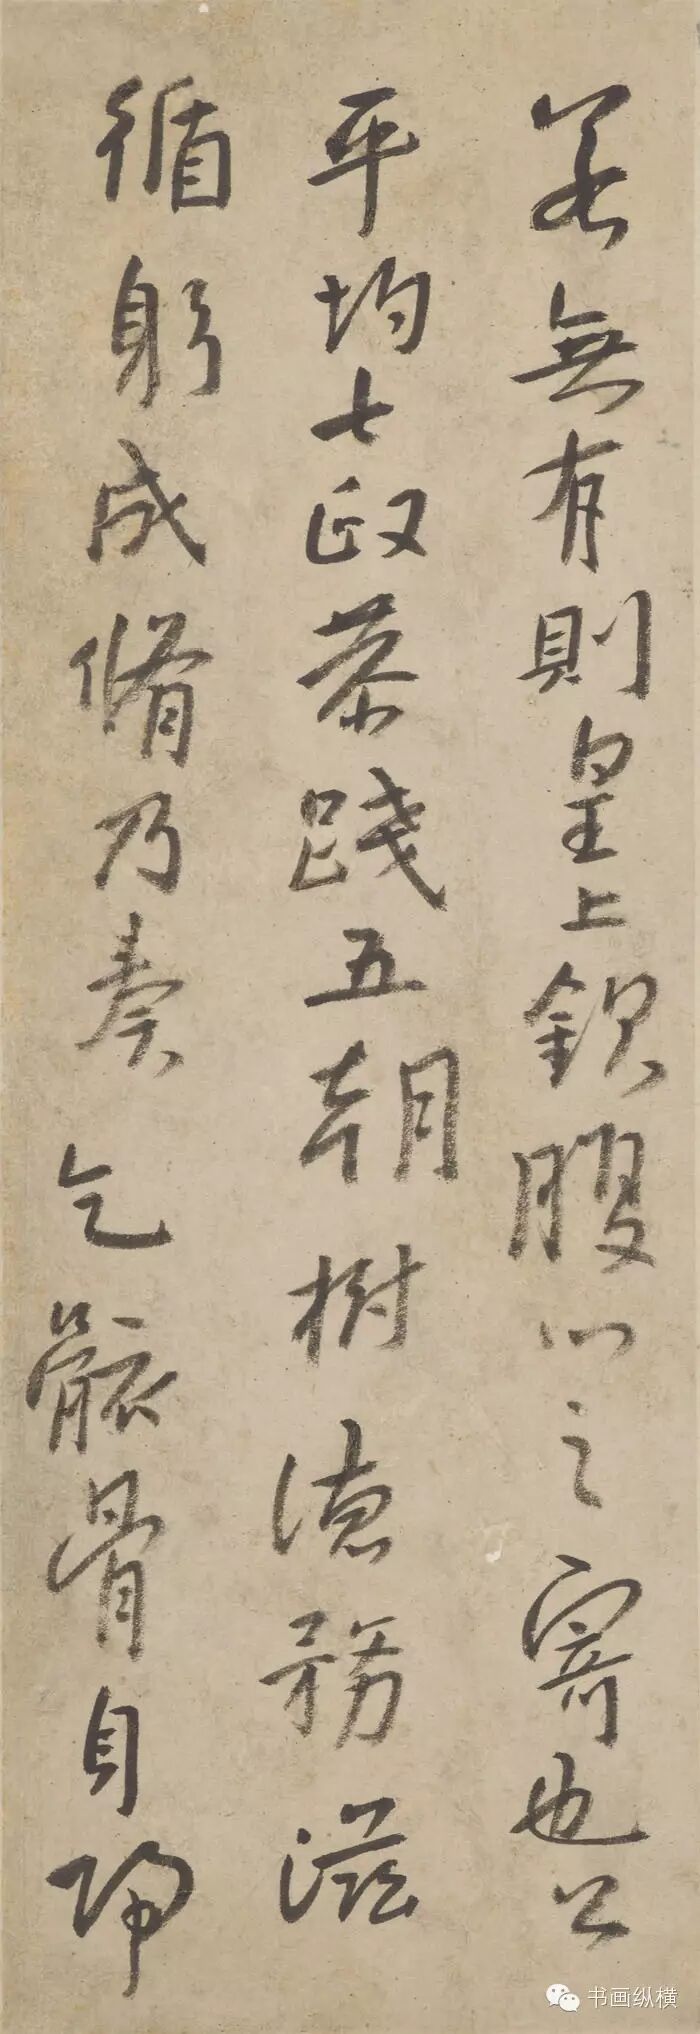 若無有則皇上欽腹心之寄也公
平均七政恭踐五朝樹德務滋
循躬成脩乃奏乞骸骨自歸
书画纵横